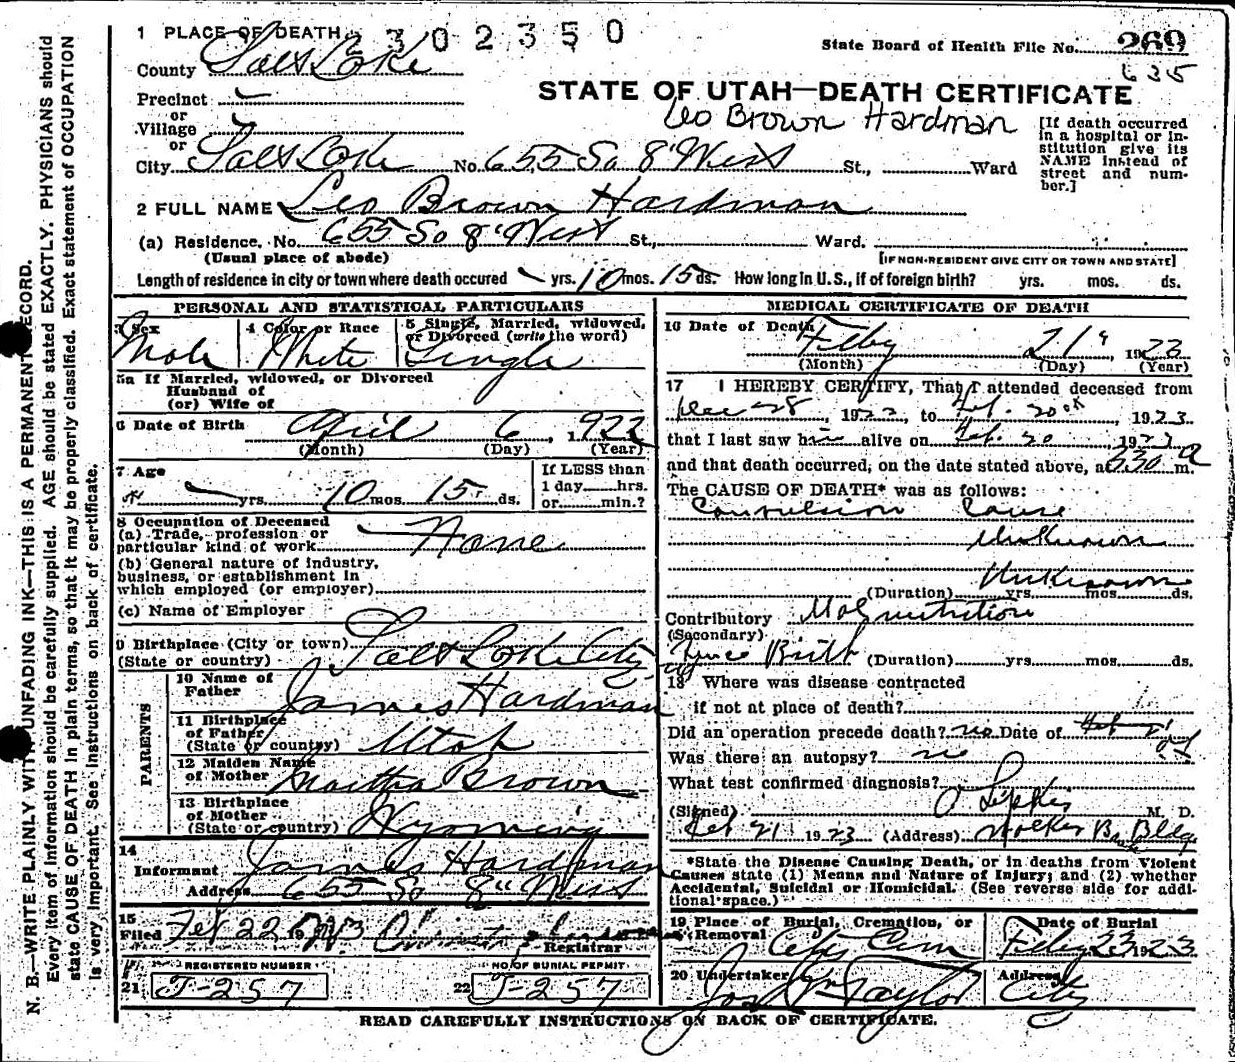 1 PLACE OF DEARTH 2 3 0 2 3 5 0
State Board of Health File No. 269
635
County Salt Lake
STATE OF UTAH—DEATH CERTIFICATE
Precinct
or
Village
or
Leo Brown Hardman
[If death occurred
in a hospital or in-
stitution give its
NAME instead of
street and num-
ber.]
City Salt Lake No. 655 So 8" West St., Ward
2 FULL NAME Leo Brown Hardman
(a) Residence. No. 655 So 8" West St., Ward.
(Usual place of abode) [IF NON-RESIDENT GIVE CITY OR TOWN AND STATE]
Length of residence in city or town where death occured yrs. 10 mos. 15 ds. How long in U.S., if of foreign birth? yrs. mos. ds.
PERSONAL AND STATISTICAL PARTICULARS
3 Sex 4 Color or Race 5 Single, Married, widowed,
or Divorced (write the word)
Male White Single
5a If Married, widowed, or Divorced
Husband of
(or) Wife of
6 Date of Birth April 6, 1922
(Month) (Day) (Year)
7 Age
yrs. 10 mos. 15 ds.
If LESS than
1 day hrs.
or min.?
8 Occupation of Deceased
(a) Trade, profession or
particular kind of work None
(b) General nature of industry,
business, or establishment in
which employed (or employer)
(c) Name of Employer
9 Birthplace (City or town) Salt Lake City
(State or country)
PARENTS
10 Name of
Father James Hardman
11 Birthplace
of Father
(State or country) Utah
12 Maiden Name
of Mother Martha Brown
13 Birthplace
of Mother
(State or country) Wyoming
14
Informant James Hardman
Address 655 So 8" West
15
Filed Feb 22 1923
Registrar
REGISTERED NUMBER NO. OF BURIAL PERMIT
21 J-257 22 J-257
MEDICAL CERTIFICATE OF DEATH
16 Date of Death Feby 21", 1923
(Month) (Day) (Year)
17 I HEREBY CERTIFY, That I attended deceased from
Dec 28, 1922, to Feb. 20, 1923
that I last saw him alive on Feb. 20 1923
and that death occurred, on the date stated above, at 530 a m.
The CAUSE OF DEATH* was as follows:
Convulsion Cause
Unknown
Unknown
(Duration) yrs. mos. ds.
Contributory Malnutrition
(Secondary)
Since Birth (Duration) yrs. mos. ds.
18 Where was disease contracted
if not at place of death?
Did an operation precede death? no Date of
Was there an autopsy? no
What test confirmed diagnosis?
(Signed) M. D.
Feb 21 1923 (Address) Walker Bank Bldg
*State the Disease Causing Death, or in deaths from Violent
Causes state (1) Means and Nature of Injury; and (2) whether
Accidental, Suicidal or Homicidal. (See reverse side for addi-
tional space.)
19 Place of Burial, Cremation, or
Removal City Cem
Date of Burial
Feby 23 1923
20 Undertaker Jos Wm Taylor
Address
City
READ CAREFULLY INSTRUCTIONS ON BACK OF CERTIFICATE.
N. B.—WRITE PLAINLY WITH UNFADING INK—THIS IS A PERMANENT RECORD.
Every item of information should be carefully supplied. AGE should be stated EXACTLY. PHYSICIANS should
state CAUSE OF DEATH in plain terms, so that it may be properly classified. Exact statement of OCCUPATION
is very important. See instructions on back of certificate.